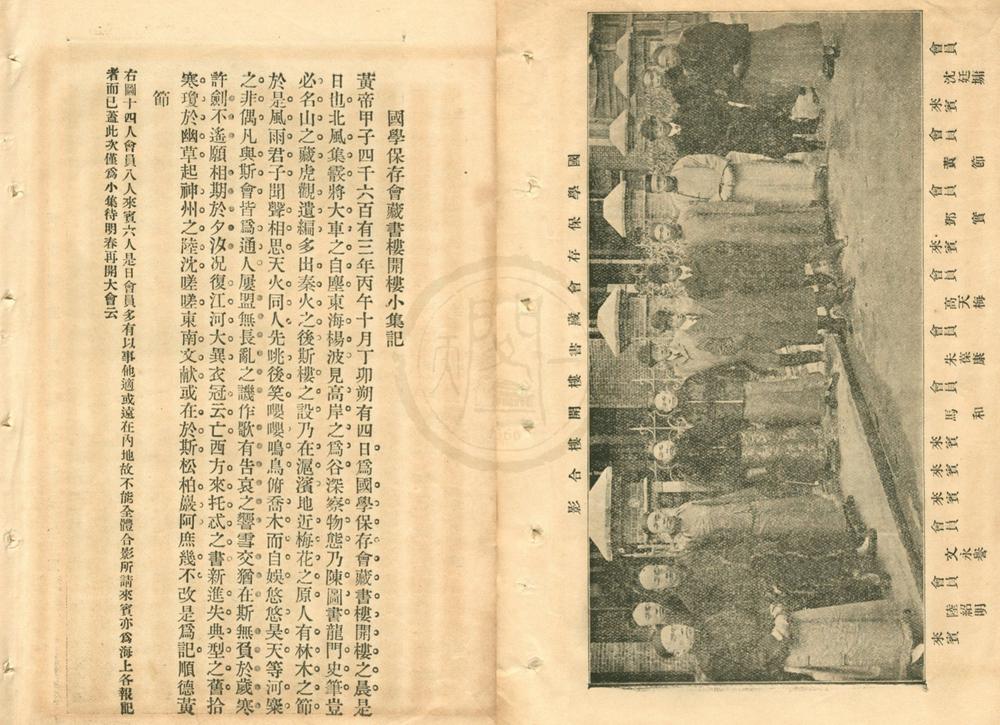 會員 沈廷墉
來賓
會員 黃節
會員 鄧實
來賓
會員 高天梅
會員 朱葆康
會員 馬和
來賓
來賓
來賓
會員 文永譽
會員 陸紹明
來賓
國學保存會藏書樓開樓合影
國學保存會藏書樓開樓小集記
黃帝甲子四千六百有三年丙午十月丁卯朔有四日爲國學保存會藏書樓開樓之晨是
日也北風集霰將大車之自塵東海楊波見高岸之爲谷深察物態乃陳圖書龍門史筆豈
必名山之藏虎觀遺編多出秦火之後斯樓之設乃在滬濱地近梅花之原人有林木之節
於是風雨君子聞聲相思天火同人先咷後笑嚶嚶鳴鳥俯喬木而自娛悠悠昊天等河麋
之非偶凡與斯會皆爲通人屢盟無長亂之譏作歌有告哀之響雪交猶在斯無負於歲寒
許劍不遙願相期於夕汝况復江河大異衣冠云亡西方來托忒之書新進失典型之舊拾
寒瓊於幽草起神州之陸沈嗟嗟東南文献或在於斯松柏巖阿庶幾不改是爲記順德黃
節
右圖十四人會員八人來賓六人是日會員多有以事他適或遠在內地故不能全體合影所請來賓亦爲海上各報記
者而已蓋此次僅爲小集待明春再開大會云